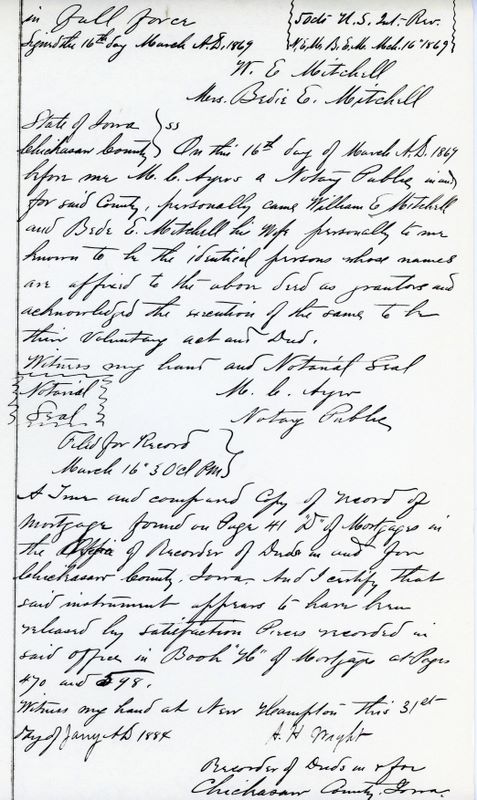 in full force
Signed the 16th day March A.D. 1869
50cts U.S. Int. Rev.
W. E. M. B. E. M. Mch. 16" 1869
W. E Mitchell
Mrs. Bedie E. Mitchell
State of Iowa } ss
Chickasaw County} On this 16th day of March A.D. 1869
before me M. C. Ayers a Notary Public in and
for said County, personally came William E. Mitchell
and Bede E. Mitchell his Wife personally to me
known to be the identical persons whose names
are affixed to the above deed as grantors and
acknowledged the execution of the same to be
their voluntary act and Deed.
Witness my hand and Notarial Seal
Notarial
Seal
M. C. Ayers
Notary Public
Filed for Record
March 16" 3 Ocl PM
A True and compared Copy of record of
mortgage found on Page 41 "D" of Mortgages in
the Office of Recorder of Deeds in and for
Chickasaw County, Iowa. And I certify that
said instrument appears to have been
released by satisfaction Pieces recorded in
said office in Book "H" of Mortgages at Pages
470 and 598.
Witness my hand at New Hampton this 31st
Day of Jany AD 1884
A. H. Wright
Recorder of Deeds in & for
Chickasaw County, Iowa.